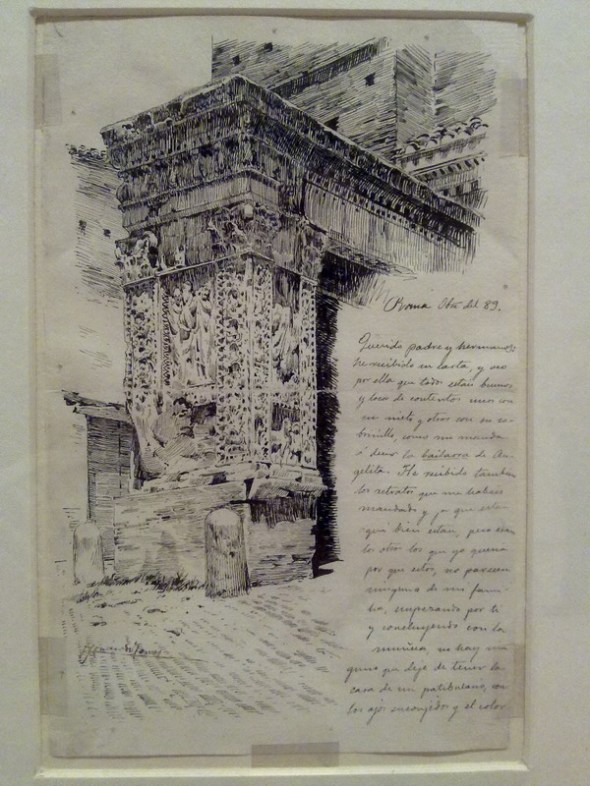 Roma Obre del 89.
Querido padre y hermanos
he recibido su carta, y veo
por ella que todos están buenos
y locos de contentos unos con
su nieto y otros con su so-
brinillo, como me manda
á decir la de An-
gelita. He recibido tambien
los retratos que me habeis
mandado y ya que están
que bien están, pero eran
los otros los que yo queria
por que estos, no parecen
ninguno de mi fami-
lia, empezando por ti
y concluyendo con la
no hay nin
guno que deje de tener la
cara de un patibulario, con
los ojos encogidos y el color